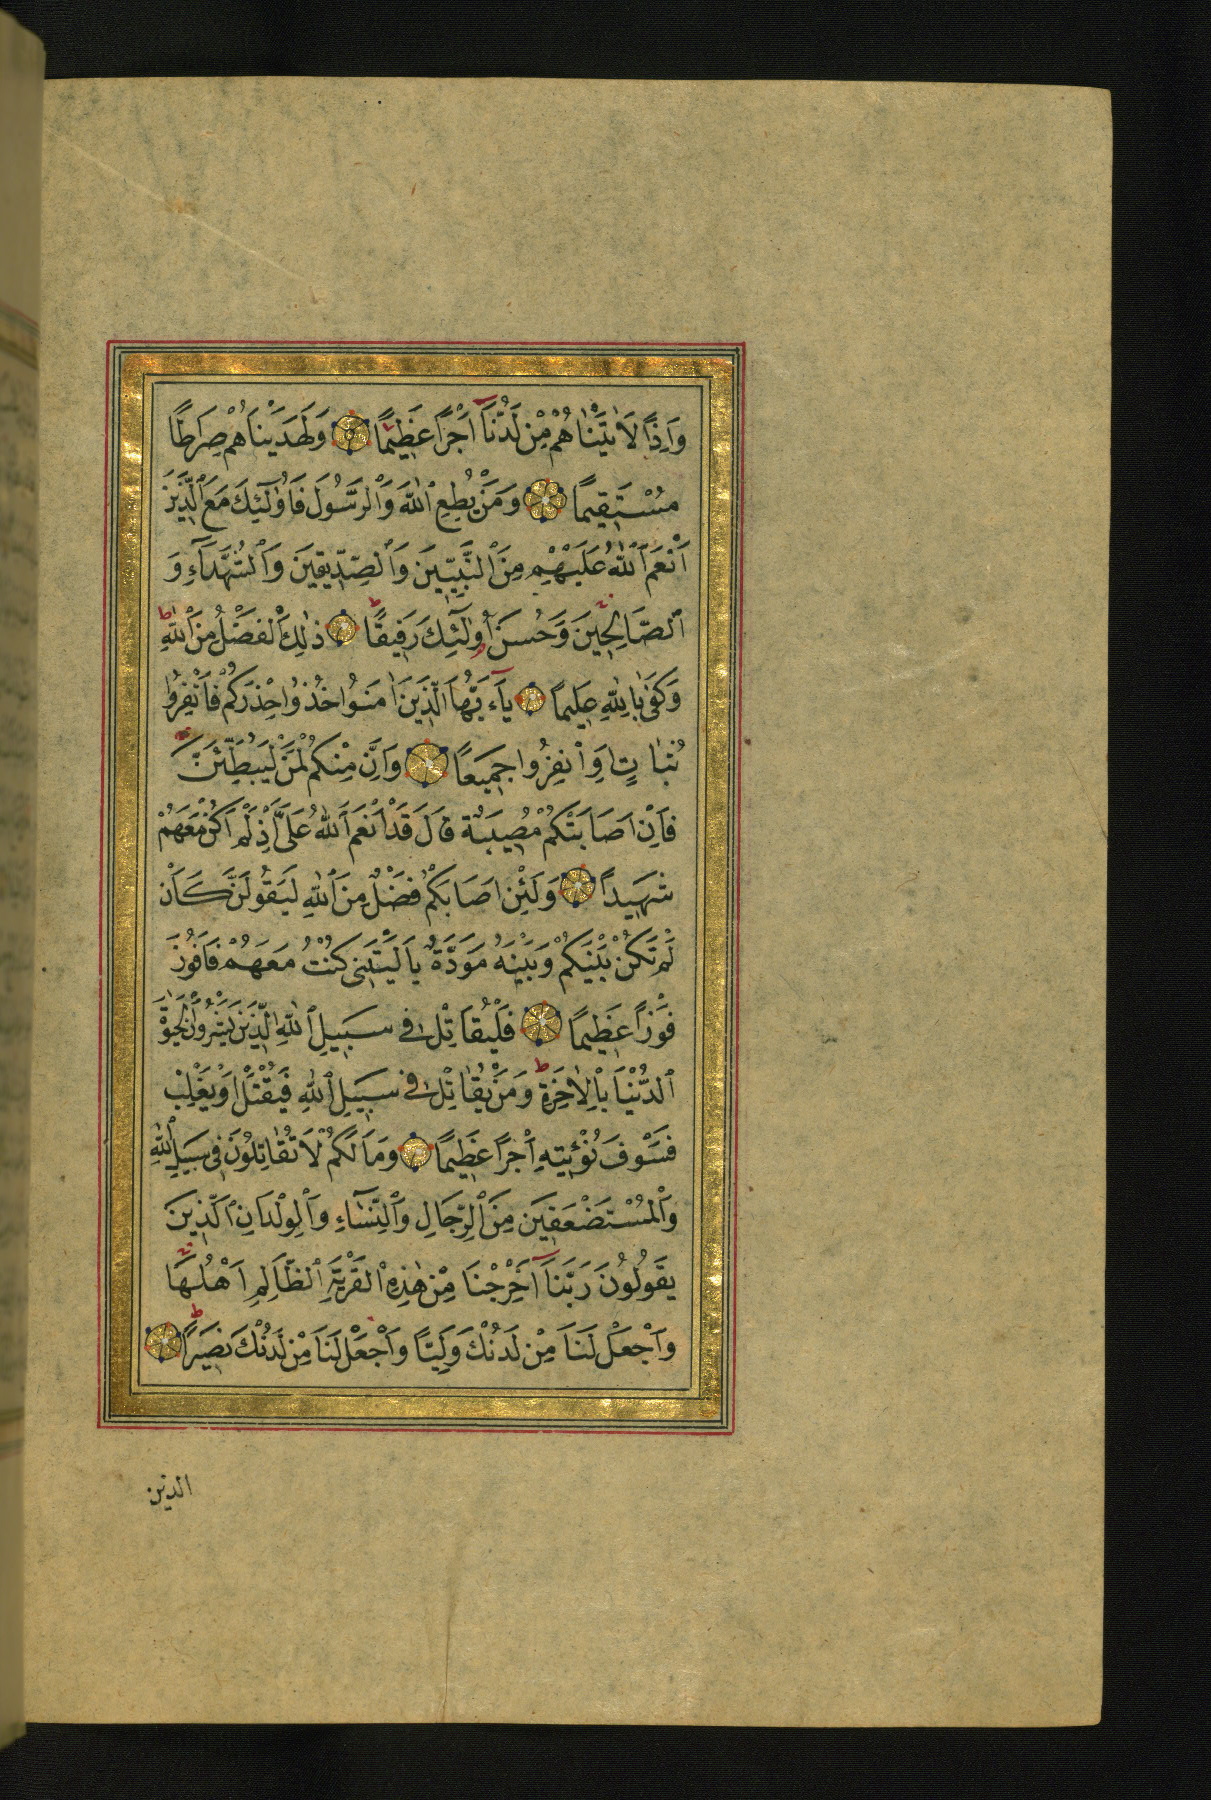 وَاِذًا لَاٰتَيْنَاهُمْ مِنْ لَدُنَّٓا اَجْرًا عَظِيمًا وَلَهَدَيْنَاهُمْ صِرَاطًا
مُسْتَقِيمًا وَمَنْ يُطِعِ ٱللّٰهَ وَٱلرَّسُولَ فَاُولٰٓئِكَ مَعَ ٱلَّذِينَ
اَنْعَمَ ٱللّٰهُ عَلَيْهِمْ مِنَ ٱلنَّبِيّٖنَ وَٱلصِّدِّيقِينَ وَٱلشُّهَدَٓاءِ وَ
ٱلصَّالِحِينَ وَحَسُنَ اُولٰٓئِكَ رَفِيقًا ذٰلِكَ ٱلْفَضْلُ مِنَ ٱللّٰهِ
وَكَفٰى بِاللّٰهِ عَلِيمًا يَٓا ءَيُّهَا ٱلَّذِينَ اٰمَنُوا خُذُوا حِذْرَكُمْ فَٱنْفِرُوا
ثُبَاتٍ اَوِ ٱنْفِرُوا جَمِيعًا وَاِنَّ مِنْكُمْ لَمَنْ لَيُبَطِّئَنَّ
فَاِنْ اَصَابَتْكُمْ مُصِيبَةٌ قَالَ قَدْ اَنْعَمَ ٱللّٰهُ عَلَىَّ اِذْ لَمْ اَكُنْ مَعَهُمْ
شَهِيدًا وَلَئِنْ اَصَابَكُمْ فَضْلٌ مِنَ ٱللّٰهِ لَيَقُولَنَّ كَاَنْ
لَمْ تَكُنْ بَيْنَكُمْ وَبَيْنَهُ مَوَدَّةٌ يَا لَيْتَنِى كُنْتُ مَعَهُمْ فَاَفُوزَ
فَوْزًا عَظِيمًا فَلْيُقَاتِلْ فِى سَبِيلِ ٱللّٰهِ ٱلَّذِينَ يَشْرُونَ ٱلْحَيٰوةَ
ٱلدُّنْيَا بِٱلْاٰخِرَةِ وَمَنْ يُقَاتِلْ فِى سَبِيلِ ٱللّٰهِ فَيُقْتَلْ اَوْ يَغْلِبْ
فَسَوْفَ نُؤْتِيهِ اَجْرًا عَظِيمًا وَمَا لَكُمْ لَا تُقَاتِلُونَ فِى سَبِيلِ ٱللّٰهِ
وَٱلْمُسْتَضْعَفِينَ مِنَ ٱلرِّجَالِ وَٱلنِّسَٓاءِ وَٱلْوِلْدَانِ ٱلَّذِينَ
يَقُولُونَ رَبَّنَٓا اَخْرِجْنَا مِنْ هٰذِهِ ٱلْقَرْيَةِ ٱلظَّالِمِ اَهْلُهَا
وَٱجْعَلْ لَنَا مِنْ لَدُنْكَ وَلِيًّا وَٱجْعَلْ لَنَا مِنْ لَدُنْكَ نَصِيرًا
الذين